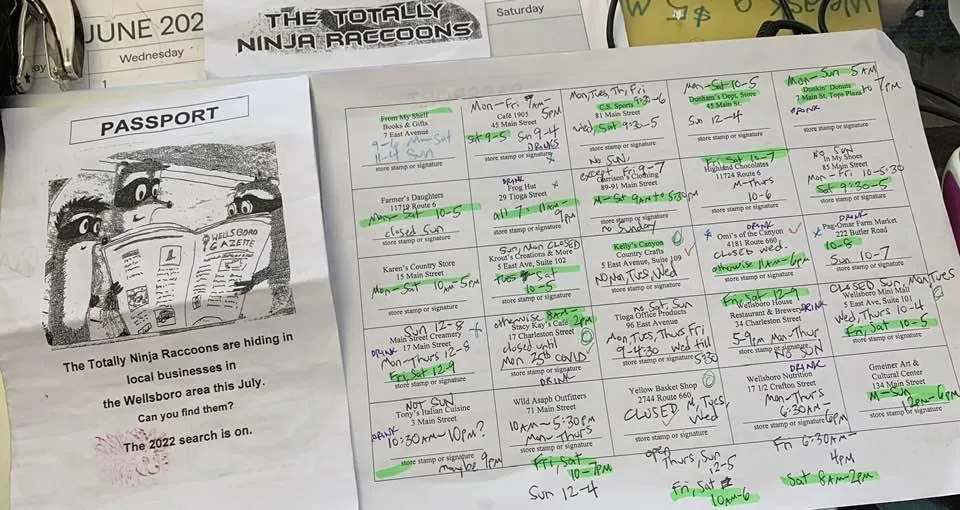 JUNE 202
Wednesday
Saturday
THE TOTALLY
NINJA RACCOONS
PASSPORT
WELLSBORO
GAZETTE
The Totally Ninja Raccoons are hiding in
local businesses in
the Wellsboro area this July.
Can you find them?
The 2022 search is on.
From My Shelf
Books & Gifts
7 East Avenue
9-6 M-Sat
11-4 Sun
store stamp or signature
Mon-Fri 7AM-
5PM
Café 1905
45 Main Street
Sat 9-5 Sun 9-4
DRINKS
store stamp or signature
Mon, Tues, Th, Fri
C.S. Sports 9:30-6
81 Main Street
Wed, Sat 9:30-5
store stamp or signature
NO SUN
Mon-Sat 10-5
Dunham's Dept. Store
45 Main St.
Sun 12-4
store stamp or signature
Mon-Sun 5AM
to 7PM
Dunkin' Donuts
7 Main St, Tops Plaza
DRINK
store stamp or signature
Farmer's Daughters
11719 Route 6
Mon-Sat 10-5
closed Sun
store stamp or signature
DRINK
Frog Hut
29 Tioga Street
all 7, 11AM-
9PM
store stamp or signature
except Fri 9-7
Garrison's Clothing
89-91 Main Street
M-Sat 9AM to 5:30pm
no Sunday
store stamp or signature
Fri, Sat 10-7
Highland Chocolates
11724 Route 6
M-Thurs
10-6
store stamp or signature
NO SUN
In My Shoes
85 Main Street
Mon-Fri 10-5:30
Sat 9:30-5
store stamp or signature
Karen's Country Store
15 Main Street
Mon-Sat 10am-5pm
store stamp or signature
Sun, Mon CLOSED
Krout's Creations & More
5 East Ave, Suite 102
Tues-Sat
10-5
store stamp or signature
Kelly's Canyon
Country Crafts
5 East Avenue, Suite 109
No Mon, Tues, Wed
store stamp or signature
DRINK
Omi's of the Canyon
4181 Route 660
CLOSED Wed.
otherwise 11AM-6pm
store stamp or signature
DRINK
Pag-Omar Farm Market
222 Butler Road
10-8
Sun 10-7
store stamp or signature
Sun 12-8
Main Street Creamery
17 Main Street
DRINK
Mon-Thurs 12-8
Fri, Sat 12-9
store stamp or signature
otherwise 8AM-
2PM
Stacy Kay's Café
17 Charleston Street
closed until
Mon 25th COVID
store stamp or signature
no Sat, Sun
Tioga Office Products
96 East Avenue
Mon, Tues, Thurs Fri
9-4:30 Wed till
5:30
store stamp or signature
Fri, Sat 12-9
Wellsboro House
Restaurant & Brewery
DRINK
34 Charleston Street
5-9pm Mon-Thur
NO SUN
store stamp or signature
CLOSED SUN, Mon, Tues
Wellsboro Mini Mall
5 East Ave, Suite 101
Wed, Thurs 10-4
Fri, Sat 10-5
store stamp or signature
NOT SUN
Tony's Italian Cuisine
3 Main Street
DRINK
10:30AM-10PM?
maybe 9pm
store stamp or signature
DRINK
Wild Asaph Outfitters
71 Main Street
10AM-5:30PM
Mon-Thurs
store stamp or signature
Fri, Sat
10-7pm
Sun 12-4
Yellow Basket Shop
2744 Route 660
CLOSED M, Tues,
Wed
store stamp or signature
open
Thurs, Sun
12-5
Fri, Sat
10AM-6
DRINK
Wellsboro Nutrition
17 1/2 Crafton Street
Mon-Thurs
6:30AM-
6pm
store stamp or signature
Fri 6:30AM-
4PM
Sat 8AM-2pm
Gmeiner Art &
Cultural Center
134 Main Street
M-Sun
2pm-6pm
store stamp or signature